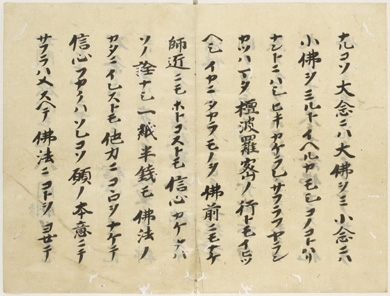 ナレコソ大念ニハ大佛ヲミ小念ニハ
小佛ヲミルトイヘルカモシコノコトハリ
ナントニハシヒキカケラレサフラフヤラン
カツハマタ檀波羅蜜ノ行トモイヒツ
ヘシイカニタカラモノヲ佛前ニモナケ
師近ニモホトコストモ信心カケナハ
ソノ詮ナシ一紙半銭モ佛法ノ
カタニイレストモ他力ニコヽロヲナケテ
信心フカクハソレコソ願ノ本意ニテ
サフラハメスヘテ佛法ニコトヲヨセテ